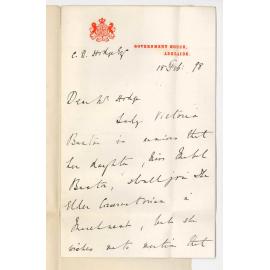 GOVERNMENT HOUSE,
ADELAIDE.
C. R. Hodge Esq
18 Feb: 98
Dear Mr Hodge
Lady Victoria
Buxton is anxious that
her daughter, Miss Mabel
Buxton, shall join the
Elder Conservatorium in
but she
wishes me to mention that